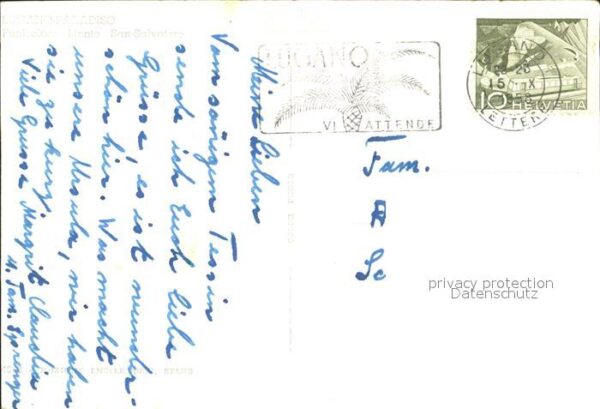 LUGANO-PARADISO
Funicolare Monte San Salvatore
Meine Lieben
Vom sonnigem Tessin
sende ich Euch liebe
Grüsse, es ist wunder-
schön hier. Was macht
unsere Ursula, wir haben
sie zu kurz.
Viele Grüsse Margrit Claudia
u. Fam. Sprenger
LUGANO
VI ATTENDE
LUGANO
15
LETTERE
10 HELVETIA
Fam.
R
Sc
privacy protection
Datenschutz